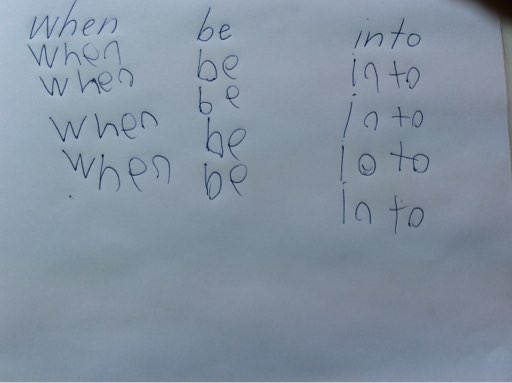 when be into
when be in to
when be in to
when be io to
when be in to